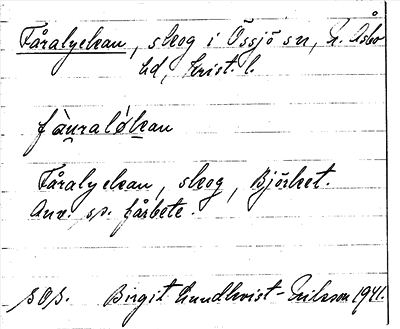 Fåralyckan, skog i Össjö sn, N. Åsbo
hd, Krist. l.
fàu̯ralǿkan
Fåralyckan, skog, Björket.
Anv. sp. fårbete.
Birgit Lundkvist-Eriksson 1941.